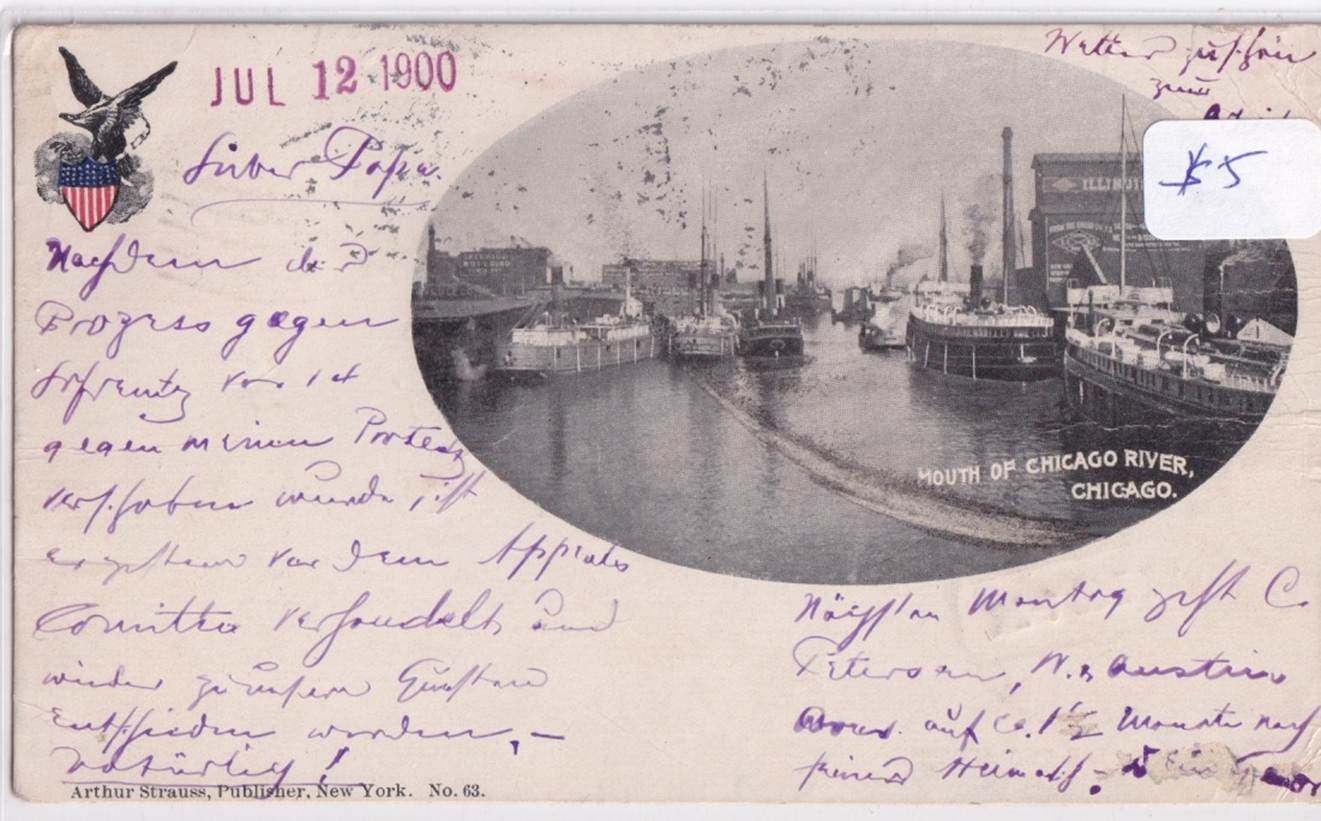 JUL 12 1900
Lieber Papa.
Nachdem der
Prozess gegen
vor 14
gegen meinen Protest
verschoben wurde, ist
er gestern vor dem Appeals
Comittee verhandelt und
wieder zu unsern Gunsten
entschieden worden, –
Natürlich!
Arthur Strauss, Publisher, New York. No. 63.
Wetter
zum
$5
ILLINOI
MOUTH OF CHICAGO RIVER,
CHICAGO.
Nächsten Montag geht C.
Petersen, N. Austin
auf ca. 1 1/2 Monate nach
seiner Heimath.